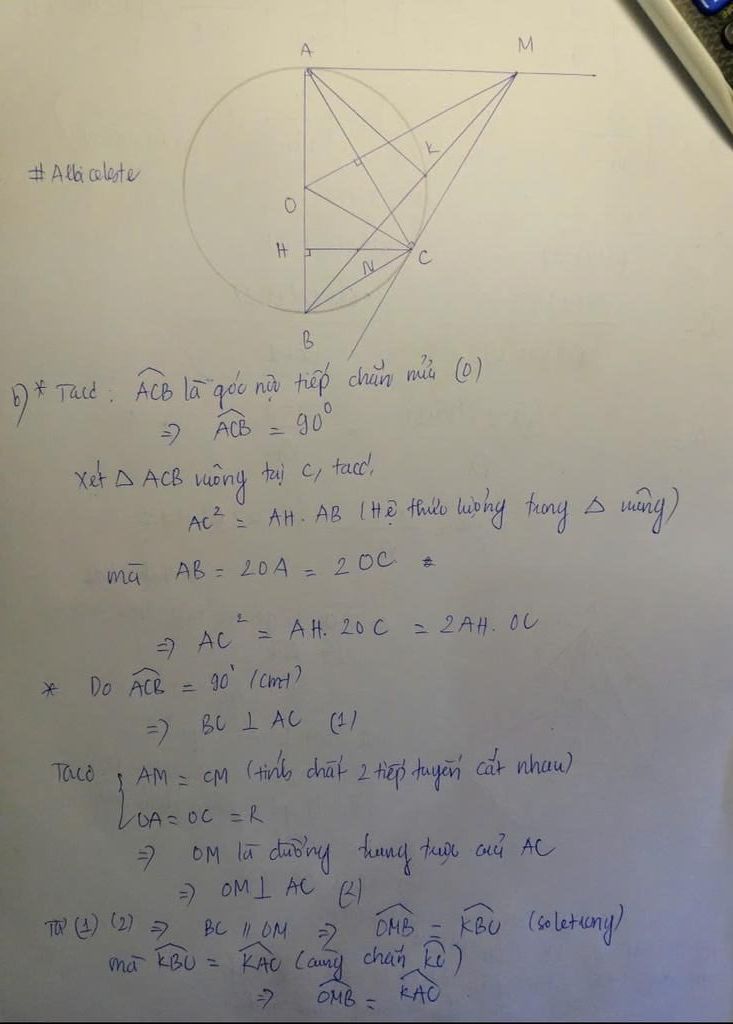 A
M
K
# Albiceleste
O
H
C
N
B
b) * Ta có: ACB là góc nội tiếp chắn nửa (O)
=> ACB = 90°
Xét Δ ACB vuông tại C, ta có,
AC² = AH. AB (Hệ thức lượng trong Δ vuông)
mà AB = 2OA = 2OC
=> AC² = AH. 2OC = 2AH. OC
* Do ACB = 90° (cmt)
=> BC ⊥ AC (1)
Ta có { AM = CM (tính chất 2 tiếp tuyến cắt nhau)
OA = OC = R
=> OM là đường trung trực của AC
=> OM ⊥ AC (2)
Từ (1) (2) => BC // OM => OMB = KBC (so le trong)
mà KBC = KAC (cùng chắn KC)
=> OMB = KAC